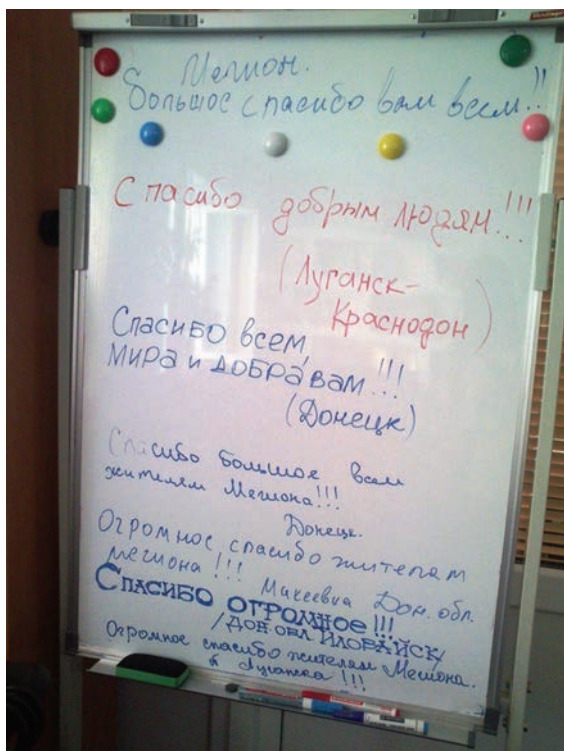 Мегион.
Большое спасибо вам всем!!
Спасибо добрым людям!!!
(Луганск-
Краснодон)
Спасибо всем,
мира и добра вам!!!
(Донецк)
Спасибо большое всем
жителям Мегиона!!!
Донецк.
Огромное спасибо жителям
мегиона!!! Макеевка Дон. обл.
Спасибо огромное!!!
/Дон. обл. Иловайск/
Огромное спасибо жителям Мегиона.
Луганска!!!